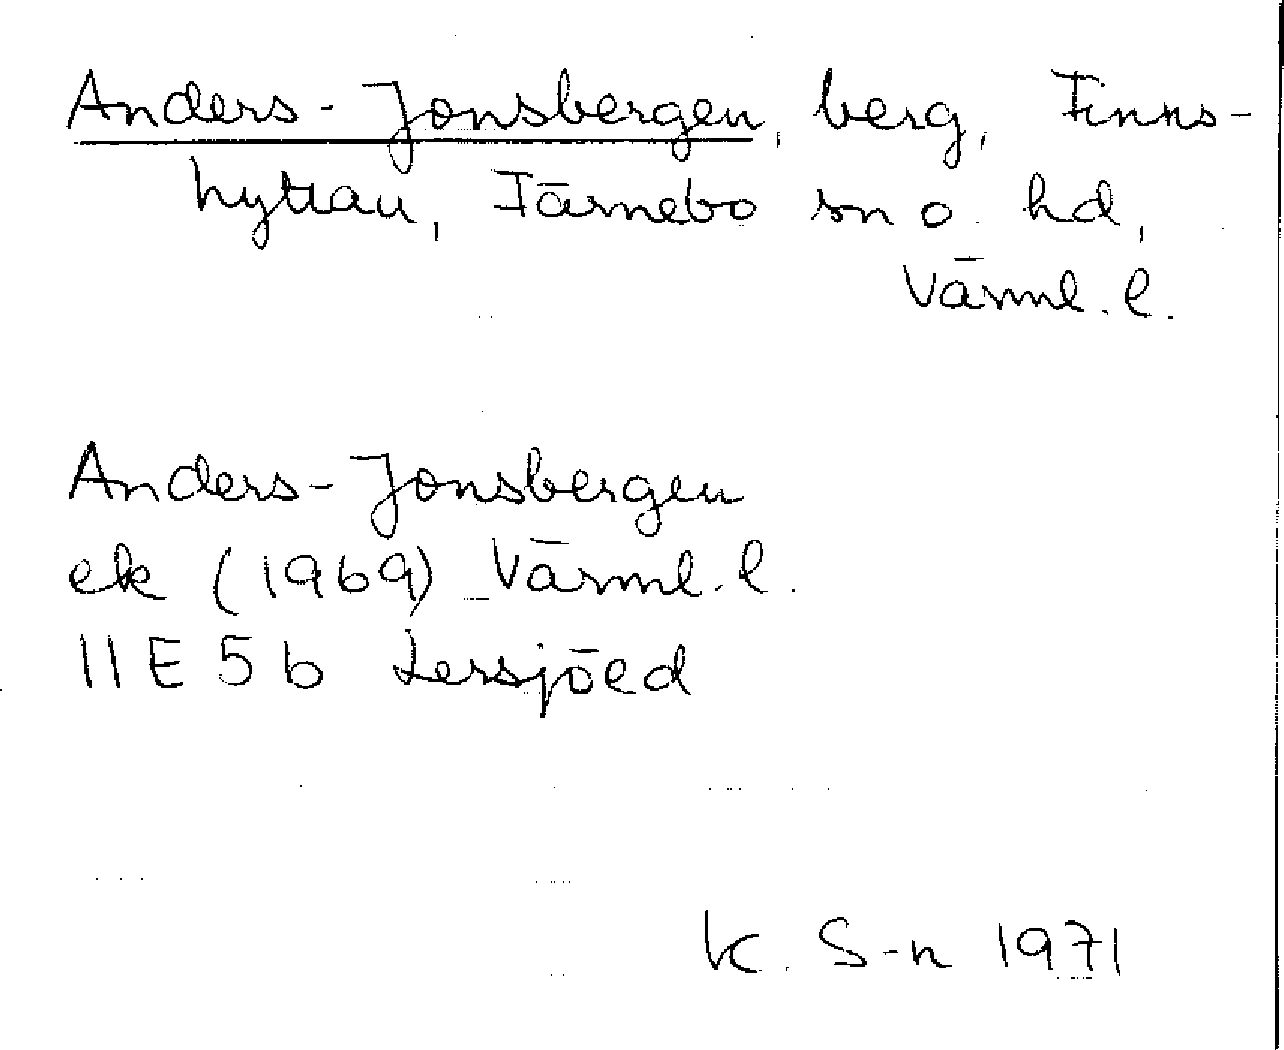 Anders-Jonsbergen, berg, Finns-
hyttan, Färnebo sn o. hd,
Värml. l.
Anders-Jonsbergen
ek (1969) Värml. l.
11E 5b Lersjöed
K. S-n 1971